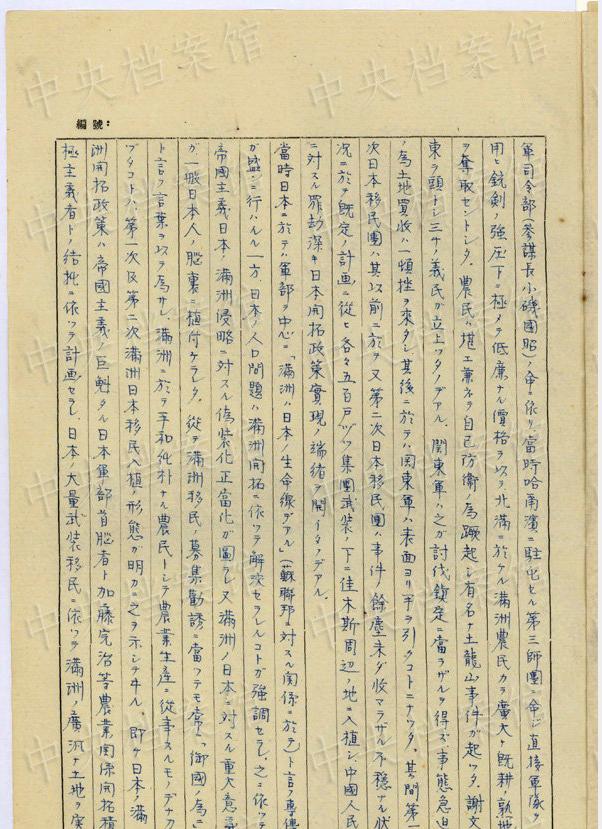 編號：
軍司令部(参謀長小磯國昭)ノ命ニ依リ當時哈爾濱ニ駐屯セル第三師團ニ命ジ直接軍隊ヲ
用ヒ銃剣ノ強圧下ニ極メテ低廉ナル價格ヲ以ヲ北滿ニ於ケル滿洲農民カラ廣大ナ既耕ノ熟地
ヲ奪取セントシタ。農民ハ堪エ兼ネヲ自己防衛ノ為蹶起シ有名ナ土龍山事件ガ起ツタ。謝文
東ヲ頭トシ三サノ義民ガ立上ツタノデアル。関東軍ハ之ガ討伐鎮定ニ當ラザルヲ得ズ、事態急迫
ノ為土地買收ハ一頓挫ヲ來タシ其後ニ於テハ関東軍ハ表面ヨリ手ヲ引クコトニナツタ。其間第一
次日本移民團ハ其以前ニ於テ又第二次日本移民團ハ事件ノ餘塵未ダ收マラザル不穏ナル状
況ニ於テ既定ノ計画ニ從ヒ各々五百戸ヅツ集團武装ノ下ニ佳木斯周辺ノ地ニ入植シ、中國人民
ニ対スル罪劫深キ日本開拓政策實現ノ端緒ヲ開イタノデアル。
當時日本ニ於テハ軍部ヲ中心ニ「滿洲ハ日本ノ生命線デアル」(蘇聯邦ニ対スル関係ニ於テ)ト言フ専傳
ガ盛ニ行ハルル一方、日本ノ人口問題ハ滿洲開拓ニ依ツテ解決セラレルコトガ強調セラレ、之ニ依ツテ
帝國主義日本ノ滿洲侵略ニ対スル偽装化正當化ガ圖ラレ又滿洲ノ日本ニ対スル重大意義
ガ一般日本人ノ脳裏ニ植付ケラレタ。從ヲ滿洲移民ノ募集勧誘ニ當ツテモ常ニ「御國ノ為ニ」
ト言フ言葉ヲ以テ為サレ、滿洲ニ於テ平和純朴ナル農民トシテ農業生産ニ從事スルモノデナカ
ツタコトハ、第一次及第二次滿洲日本移民入植ノ形態ガ明カニ之ヲ示シテヰル。即チ日本ノ滿
洲開拓政策ハ帝國主義ノ巨魁タル日本軍部首脳者ト加藤完治等農業関係開拓積
極主義者トノ結托ニ依ツテ計画セラレ、日本ノ大量武装移民ニ依ツテ滿洲ノ廣汎ナ土地ヲ実
中央档案馆